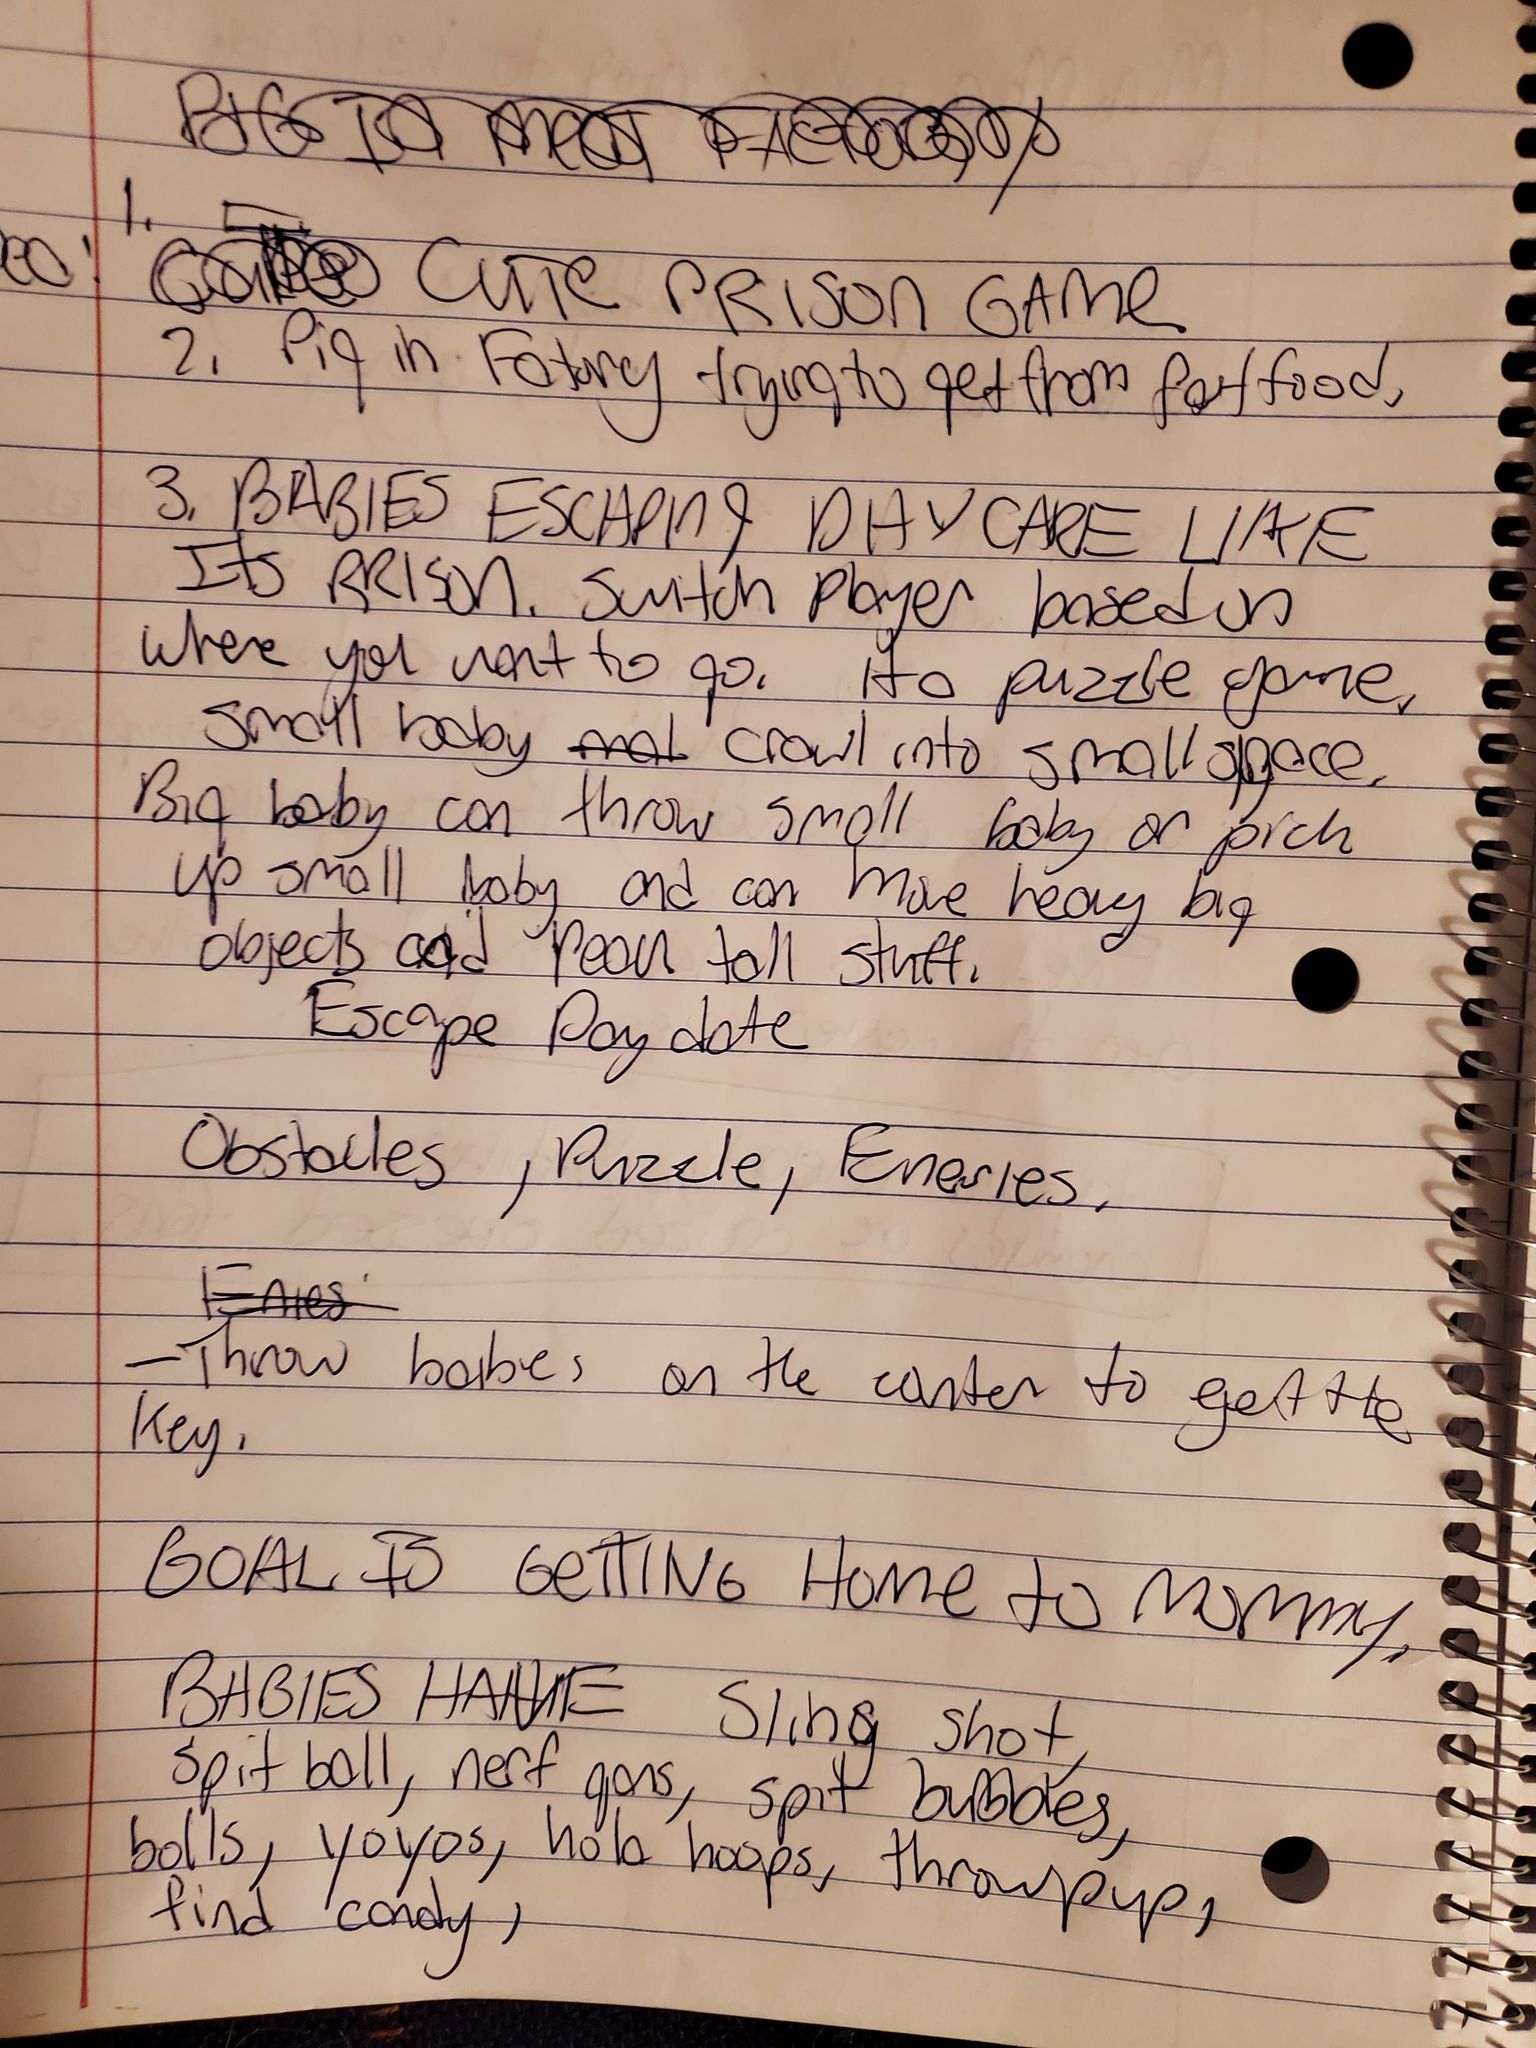 PIG IN MEAT FACTORY
1.
CUTE PRISON GAME
2. Pig in Fatory trying to get from fast food.
3. BABIES ESCAPING DAYCARE LIKE
Its PRISON. Switch Player based on
where you want to go. Its puzzle game.
small baby crawl into small space.
Big baby can throw small baby or pick
up small baby and can move heavy big
objects and reach tall stuff.
Escape Day date
Obstacles, Puzzle, Enemies.
Enies
- Throw babies on the counter to get the
Key.
GOAL IS GETTING HOME TO MOMMY.
BABIES HAVE Sling shot,
spit ball, nerf guns, spit bubbles,
balls, yoyos, hola hoops, throwpup,
find candy,